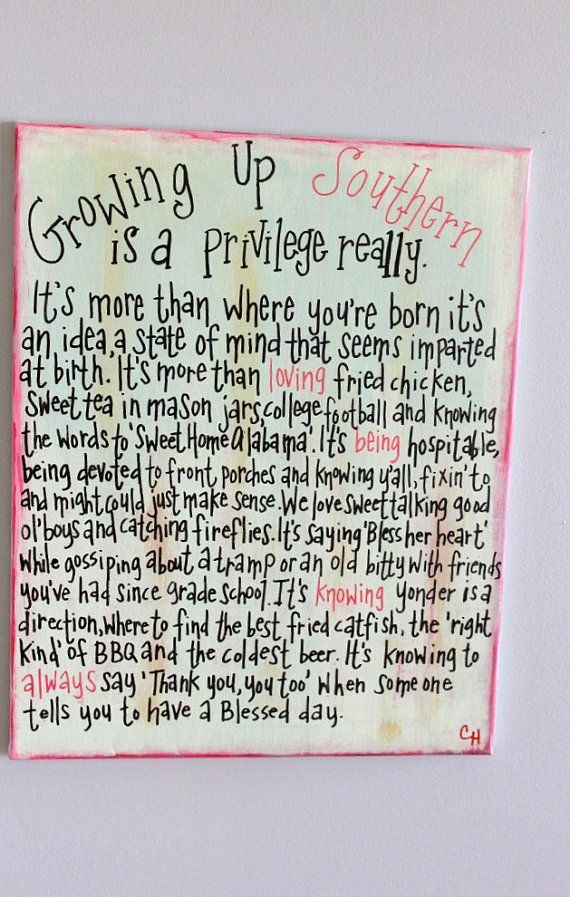 Growing Up Southern
is a Privilege really.
It's more than where you're born it's
an idea, a state of mind that seems imparted
at birth. It's more than loving fried chicken,
sweet tea in mason jars, college football and knowing
the words to 'Sweet Home Alabama'. It's being hospitable,
being devoted to front porches and knowing y'all, fixin' to
and might could just make sense. We love sweet talking good
ol' boys and catching fireflies. It's saying 'Bless her heart'
while gossiping about a tramp or an old bitty with friends
you've had since grade school. It's knowing yonder is a
direction, where to find the best fried catfish, the 'right
kind' of BBQ and the coldest beer. It's knowing to
always say 'Thank you, you too' when some one
tells you to have a Blessed day.
CH